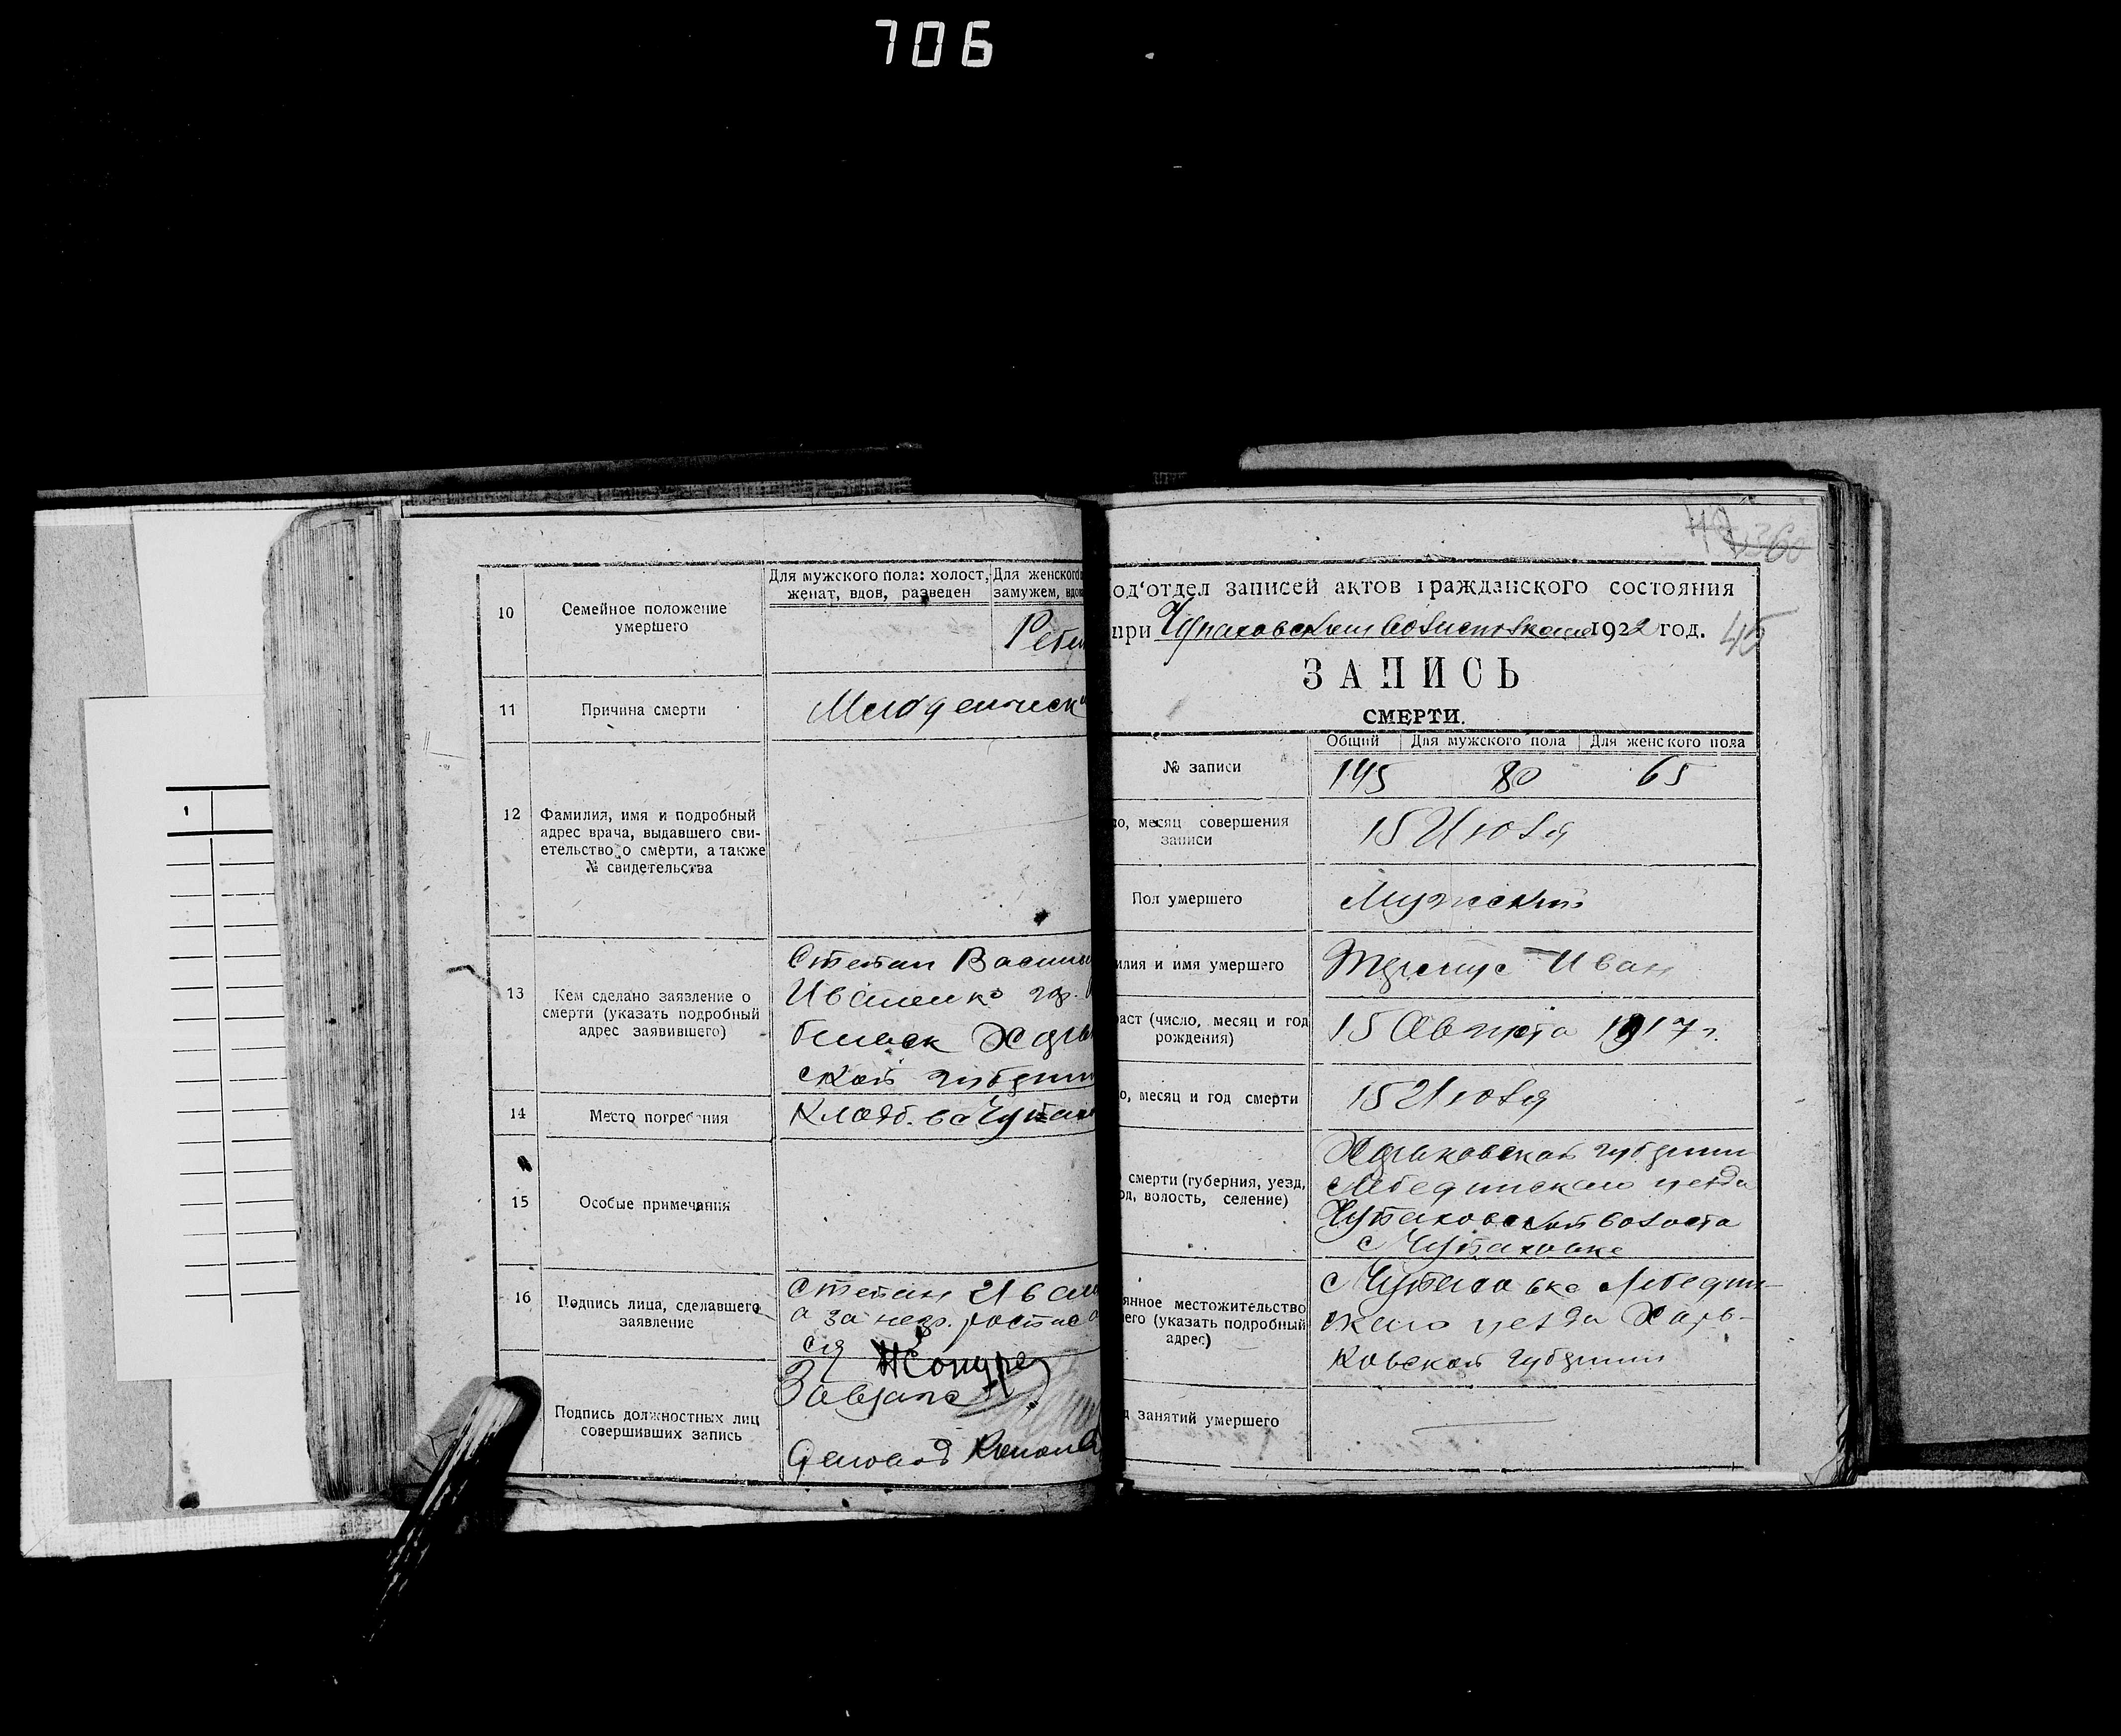 706
10
Семейное положение
умершего
Для мужского пола: холост,
женат, вдов, разведен
Для женского
замужем, вдов
Ребен
11
Причина смерти
Младенческ
12
Фамилия, имя и подробный
адрес врача, выдавшего сви-
етельство о смерти, а также
№ свидетельства
13
Кем сделано заявление о
смерти (указать подробный
адрес заявившего)
Степан Васил
Иваненко гр.
ской губерни
14
Место погребения
Кладб. в с Чупах
15
Особые примечания
16
Подпись лица, сделавшего
заявление
Степан Иван
а за негр. роспис
ся
Подпись должностных лиц
совершивших запись
Завзапс
Деловод
360
од'отдел записей актов гражданского состояния
при Чупаховском Волисполкоме 1922 год.
45
ЗАПИСЬ
СМЕРТИ.
Общий Для мужского пола Для женского пола
№ записи
145 80 65
о, месяц совершения
записи
15 Июля
Пол умершего
Мужской
илия и имя умершего
Иван
раст (число, месяц и год
рождения)
15 Августа 1917 г.
о, месяц и год смерти
15 Июля
смерти (губерния, уезд,
од, волость, селение)
Харьковской губернии
Лебединского уезда
Чупаховской волости
с Чупаховке
янное местожительство
его (указать подробный
адрес)
с Чупаховке Лебедин-
ского уезда Харь-
ковской губернии
д занятий умершего